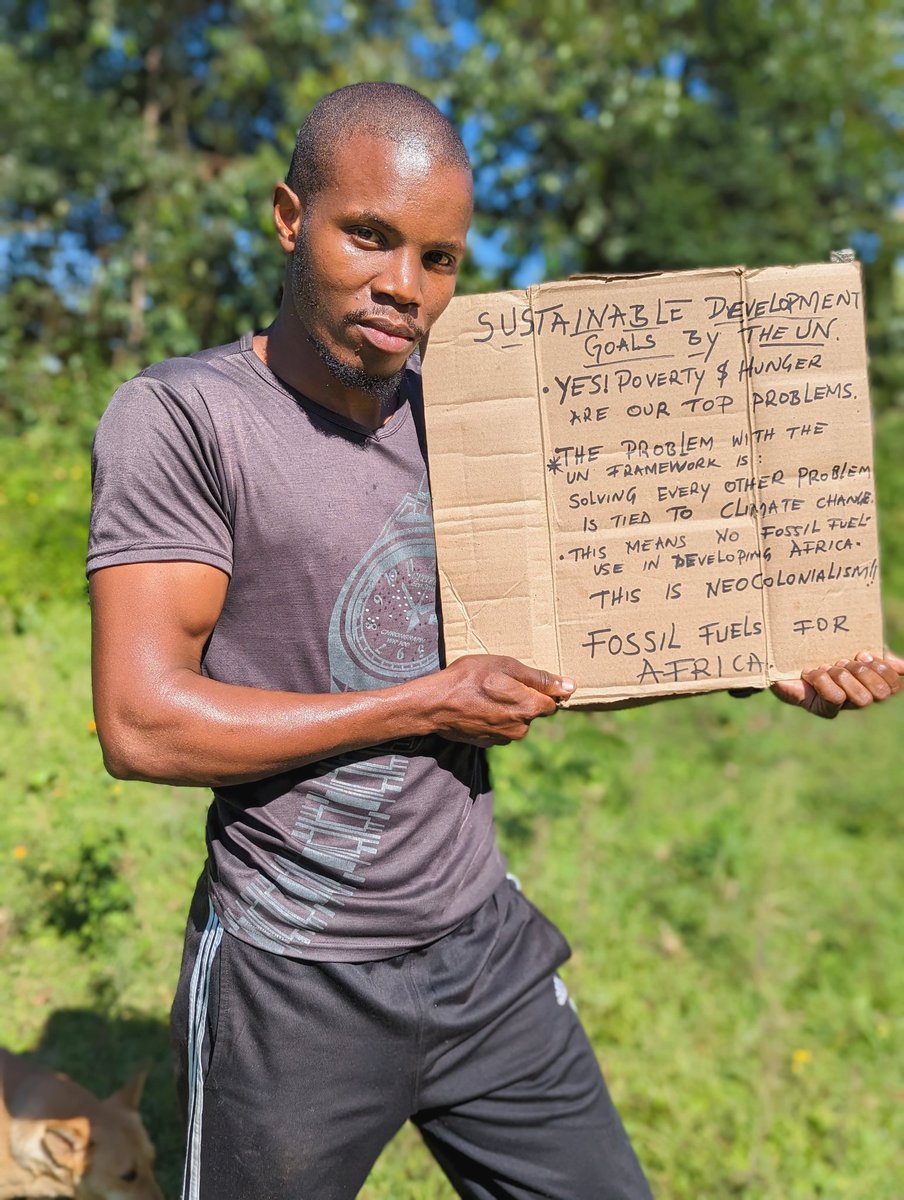 SUSTAINABLE DEVELOPMENT
GOALS BY THE UN.
• YES! POVERTY & HUNGER
ARE OUR TOP PROBLEMS.
* THE PROBLEM WITH THE
UN FRAMEWORK IS:
SOLVING EVERY OTHER PROBLEM
IS TIED TO CLIMATE CHANGE.
• THIS MEANS NO FOSSIL FUEL
USE IN DEVELOPING AFRICA.
THIS IS NEOCOLONIALISM!!
FOSSIL FUELS FOR
AFRICA
CHRONOGRAPH